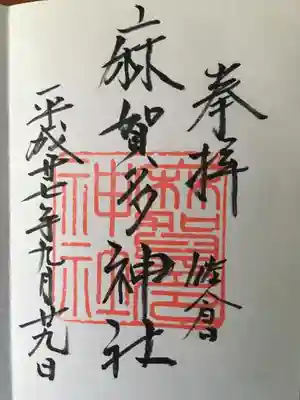 奉拝 佐倉
麻賀多神社
平成廿七年九月廿九日
麻賀多
神社